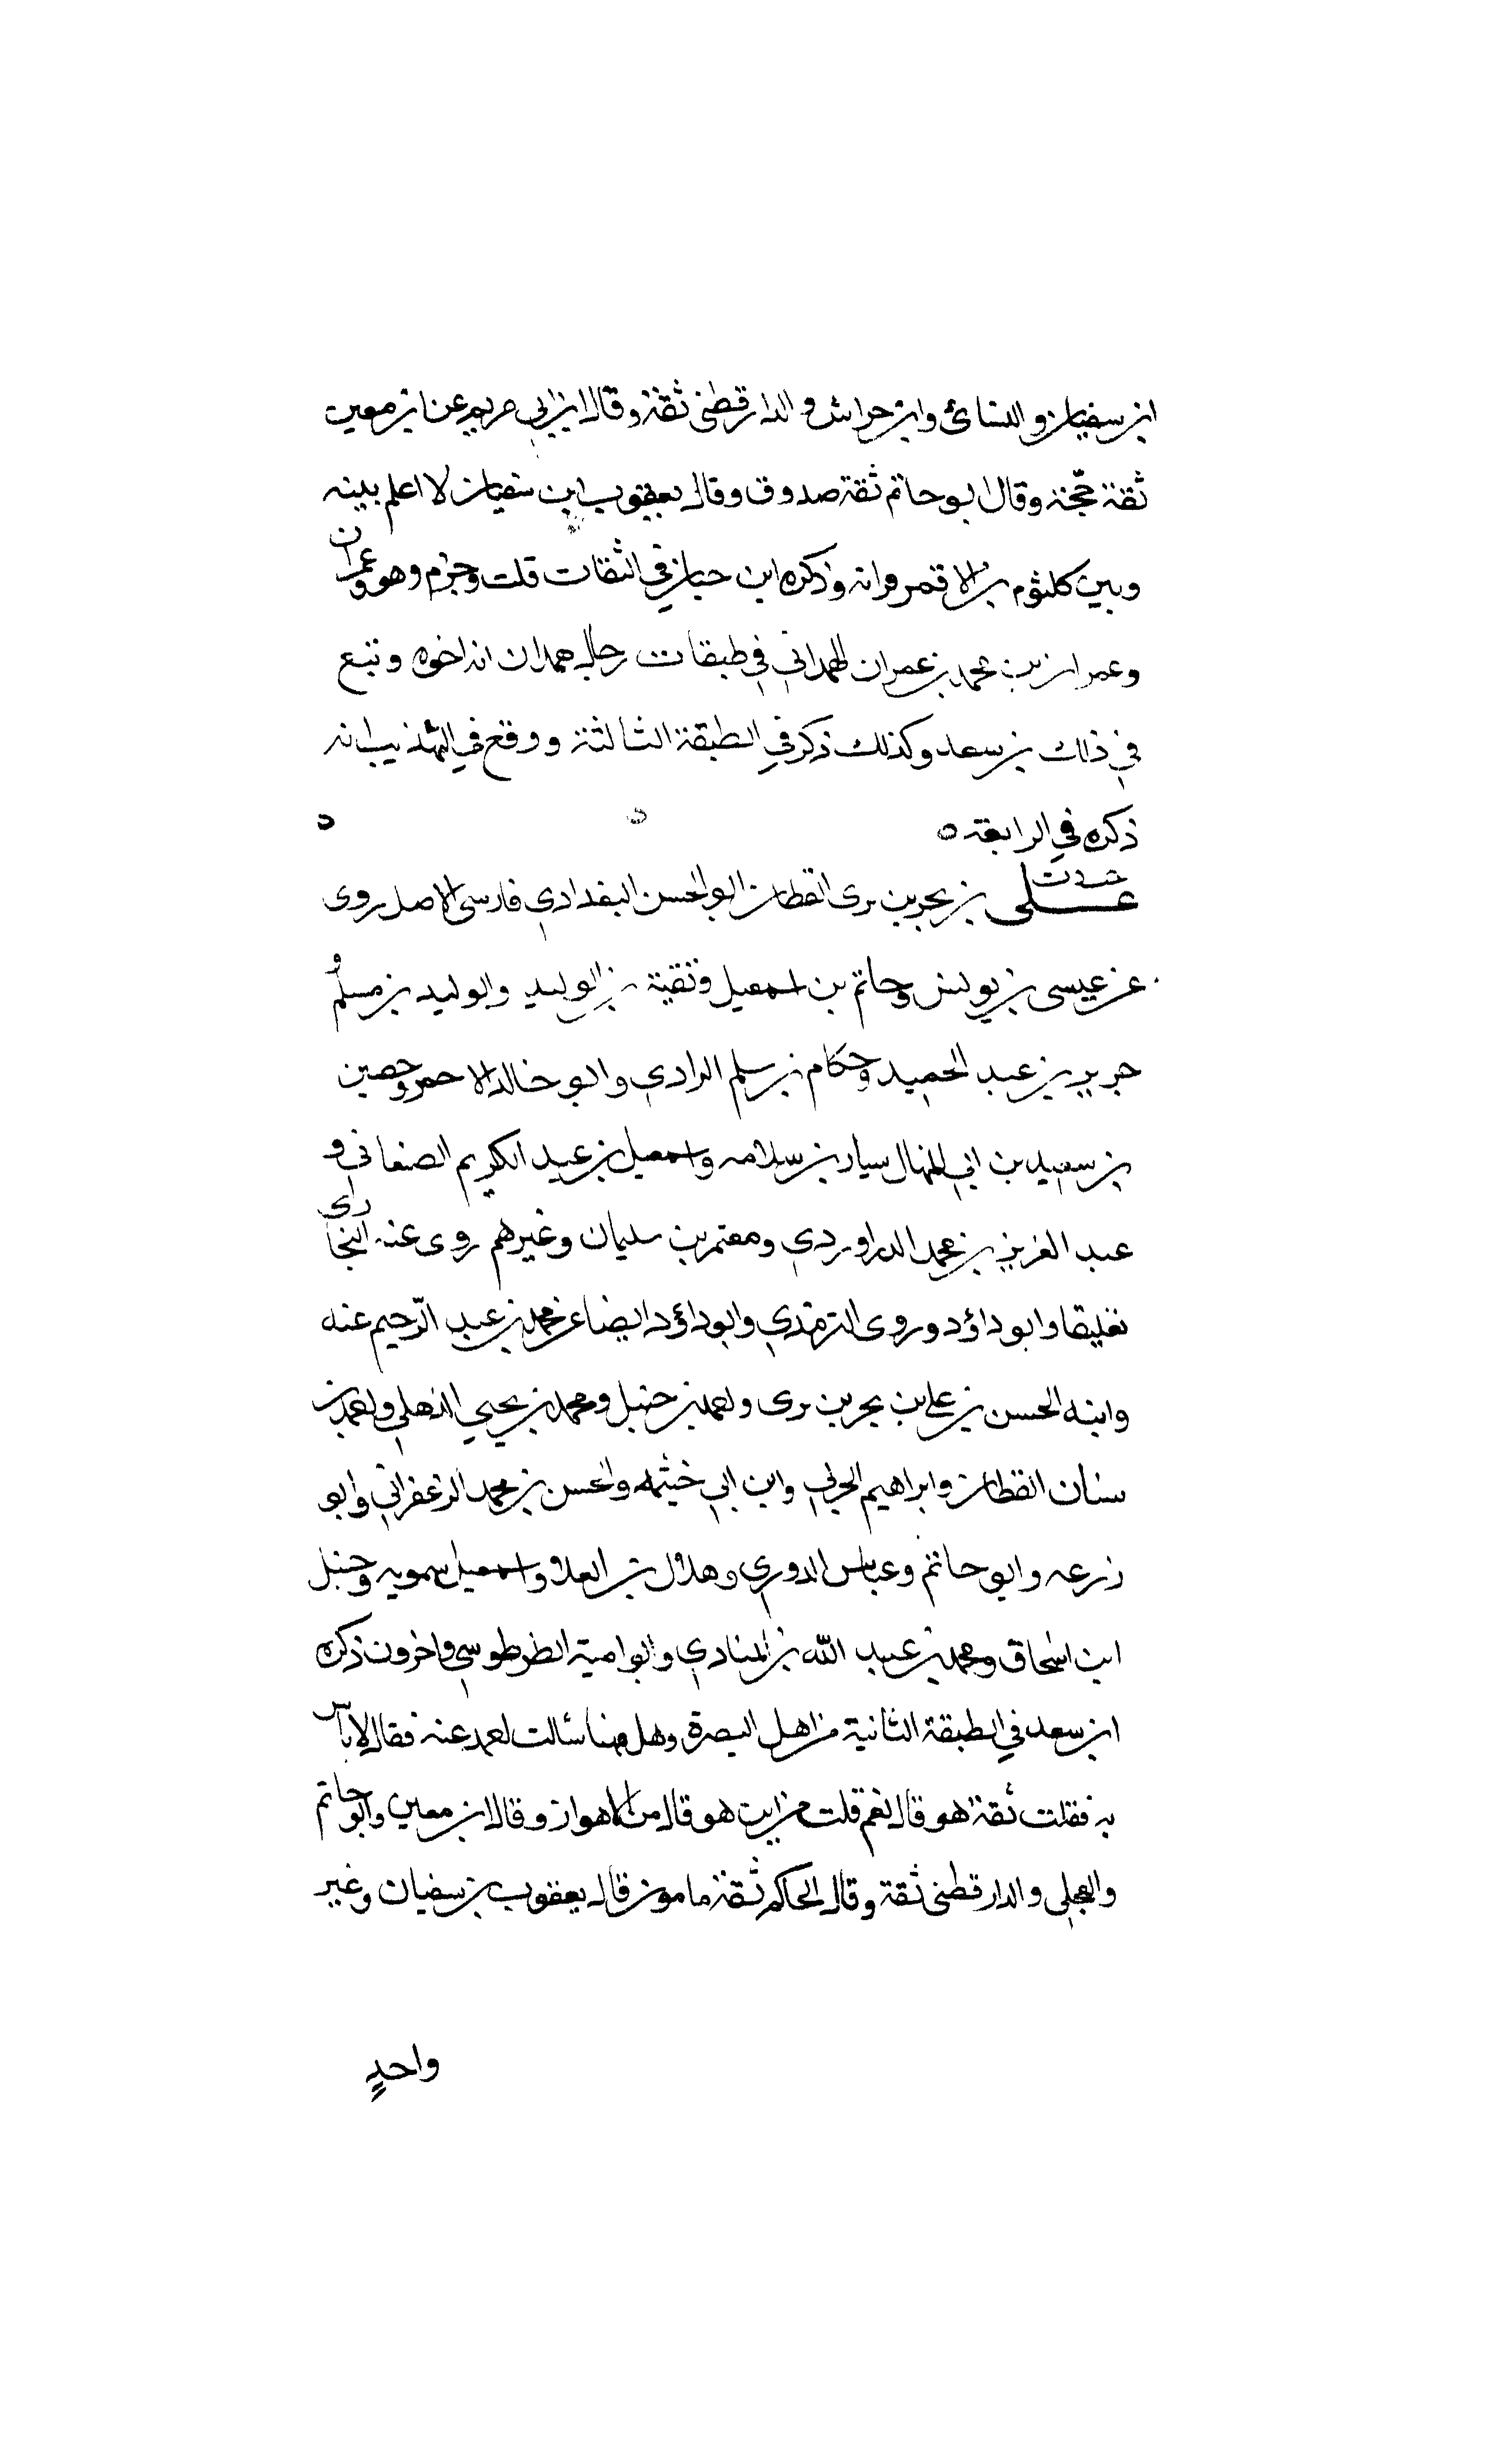 ابن سفيان والنسائ وابن خراش والدارقطنى ثقة وقال ابن ابي مريم عن ابن معين
ثقة حجة وقال ابو حاتم ثقة صدوق وقال يعقوب ابن سفيان لا اعلم بينه
وبين كلثوم بن الاقمر قرابة وذكره ابن حبان في الثقات قلت وجزم وهو وعمران
وعمران بن محمد بن عمران الهمداني في طبقات رجال همدان انه اخوه وتبع
في ذلك بن سعد وكذلك ذكر في الطبقة الثالثة ووقع في التهذيب انه
ذكره في الرابعة ه
خت د ت
علي بن بحر بن برى القطان ابو الحسن البغدادي فارسي الاصل روى
عن عيسى بن يونس وحاتم بن اسمعيل وبقية بن الوليد والوليد بن مسلم و
جرير بن عبد الحميد وحكام بن سلم الرازي وابو خالد الاحمر وحصين
بن سعيد بن ابي المنهال سيار بن سلامه واسمعيل بن عبد الكريم الصنعاني و
عبد العزيز بن محمد الدراوردي ومعتمر بن سليمان وغيرهم روى عنه البخارى
تعليقا وابو داؤد وروى الترمذي وابو داؤد ايضا عن محمد بن عبد الرحيم عنه
وابنه الحسن بن علي بن بحر بن برى واحمد بن حنبل ومحمد بن يحيي الذهلي واحمد بن
سنان القطان وابراهيم الحربي وابن ابي خيثمه والحسن بن محمد الزعفراني وابو
زرعه وابو حاتم وعباس الدوري وهلال بن العلا واسمعيل سمويه وحنبل
ابن اسحاق ومحمد بن عبيد الله بن المنادي وابو امية الطرطوسي واخرون ذكره
ابن سعد في الطبقة الثانية من اهل البصرة وقال مهنا سالت احمد عنه فقال لا باس
به فقلت ثقة هو قال نعم قلت من اين هو قال من الاهواز وقال ابن معين وابو حاتم
والعجلي والدارقطنى ثقة وقال الحاكم ثقة مامون قال يعقوب بن سفيان وغير
واحد